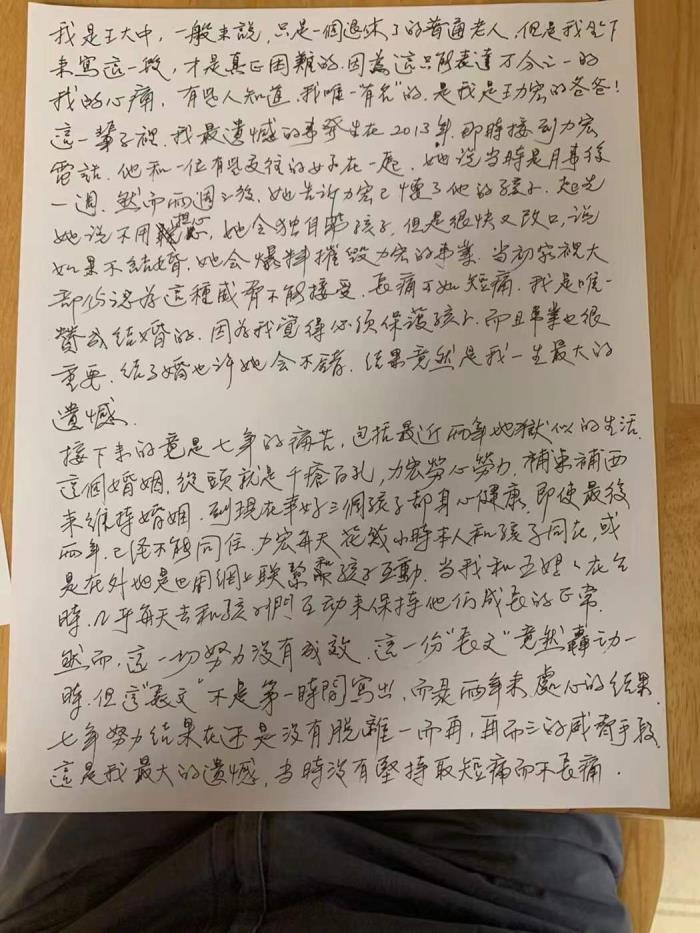 我是王大中，一般来說，只是一個退休了的普通老人，但是我坐下
来寫這一段，才是真正困難的.因為這只能表達万分之一的
我的心痛，有些人知道，我唯一"有名"的，是我是王力宏的爸爸!
這一輩子裡，我最遺憾的事發生在2013年.那時接到力宏
電話.他和一位有些交往的女子在一起，她說当時是月事後
一週.然而兩週之後，她告訴力宏已懷了他的孩子.起先
她说不用担心，她会独自帶孩子，但是很快又改口，説
如果不結婚，她会爆料摧毀力宏的事業.当初家裡大
部份認為這種威脅不能接受，長痛不如短痛.我是唯一
贊成結婚的.因為我覺得必須保護孩子.而且事業也很
重要.结了婚也許她会不錯.结果竟然是我一生最大的
遺憾.
接下来的竟是七年的痛苦，包括最近兩年地獄似的生活.
這個婚姻，從頭就是千瘡百孔，力宏勞心勞力，補東補西
来維持婚姻.到現在幸好三個孩子都身心健康，即使最後
兩年，已经不能同住.力宏每天花数小時本人和孩子同在，或
是在外地是也用網上联繫和孩子互動.当我和五姐在台
時，几乎每天去和孩子們互动来保持他们成長的正常.
然而，這一切努力没有成效.這一份"長文"竟然轟动一
時.但這"長文"不是第一時間寫出，而是兩年来處心的结果.
七年努力结果在还是没有脱離一而再，再而三的威脅手段.
這是我最大的遺憾，当時没有堅持取短痛而不長痛.